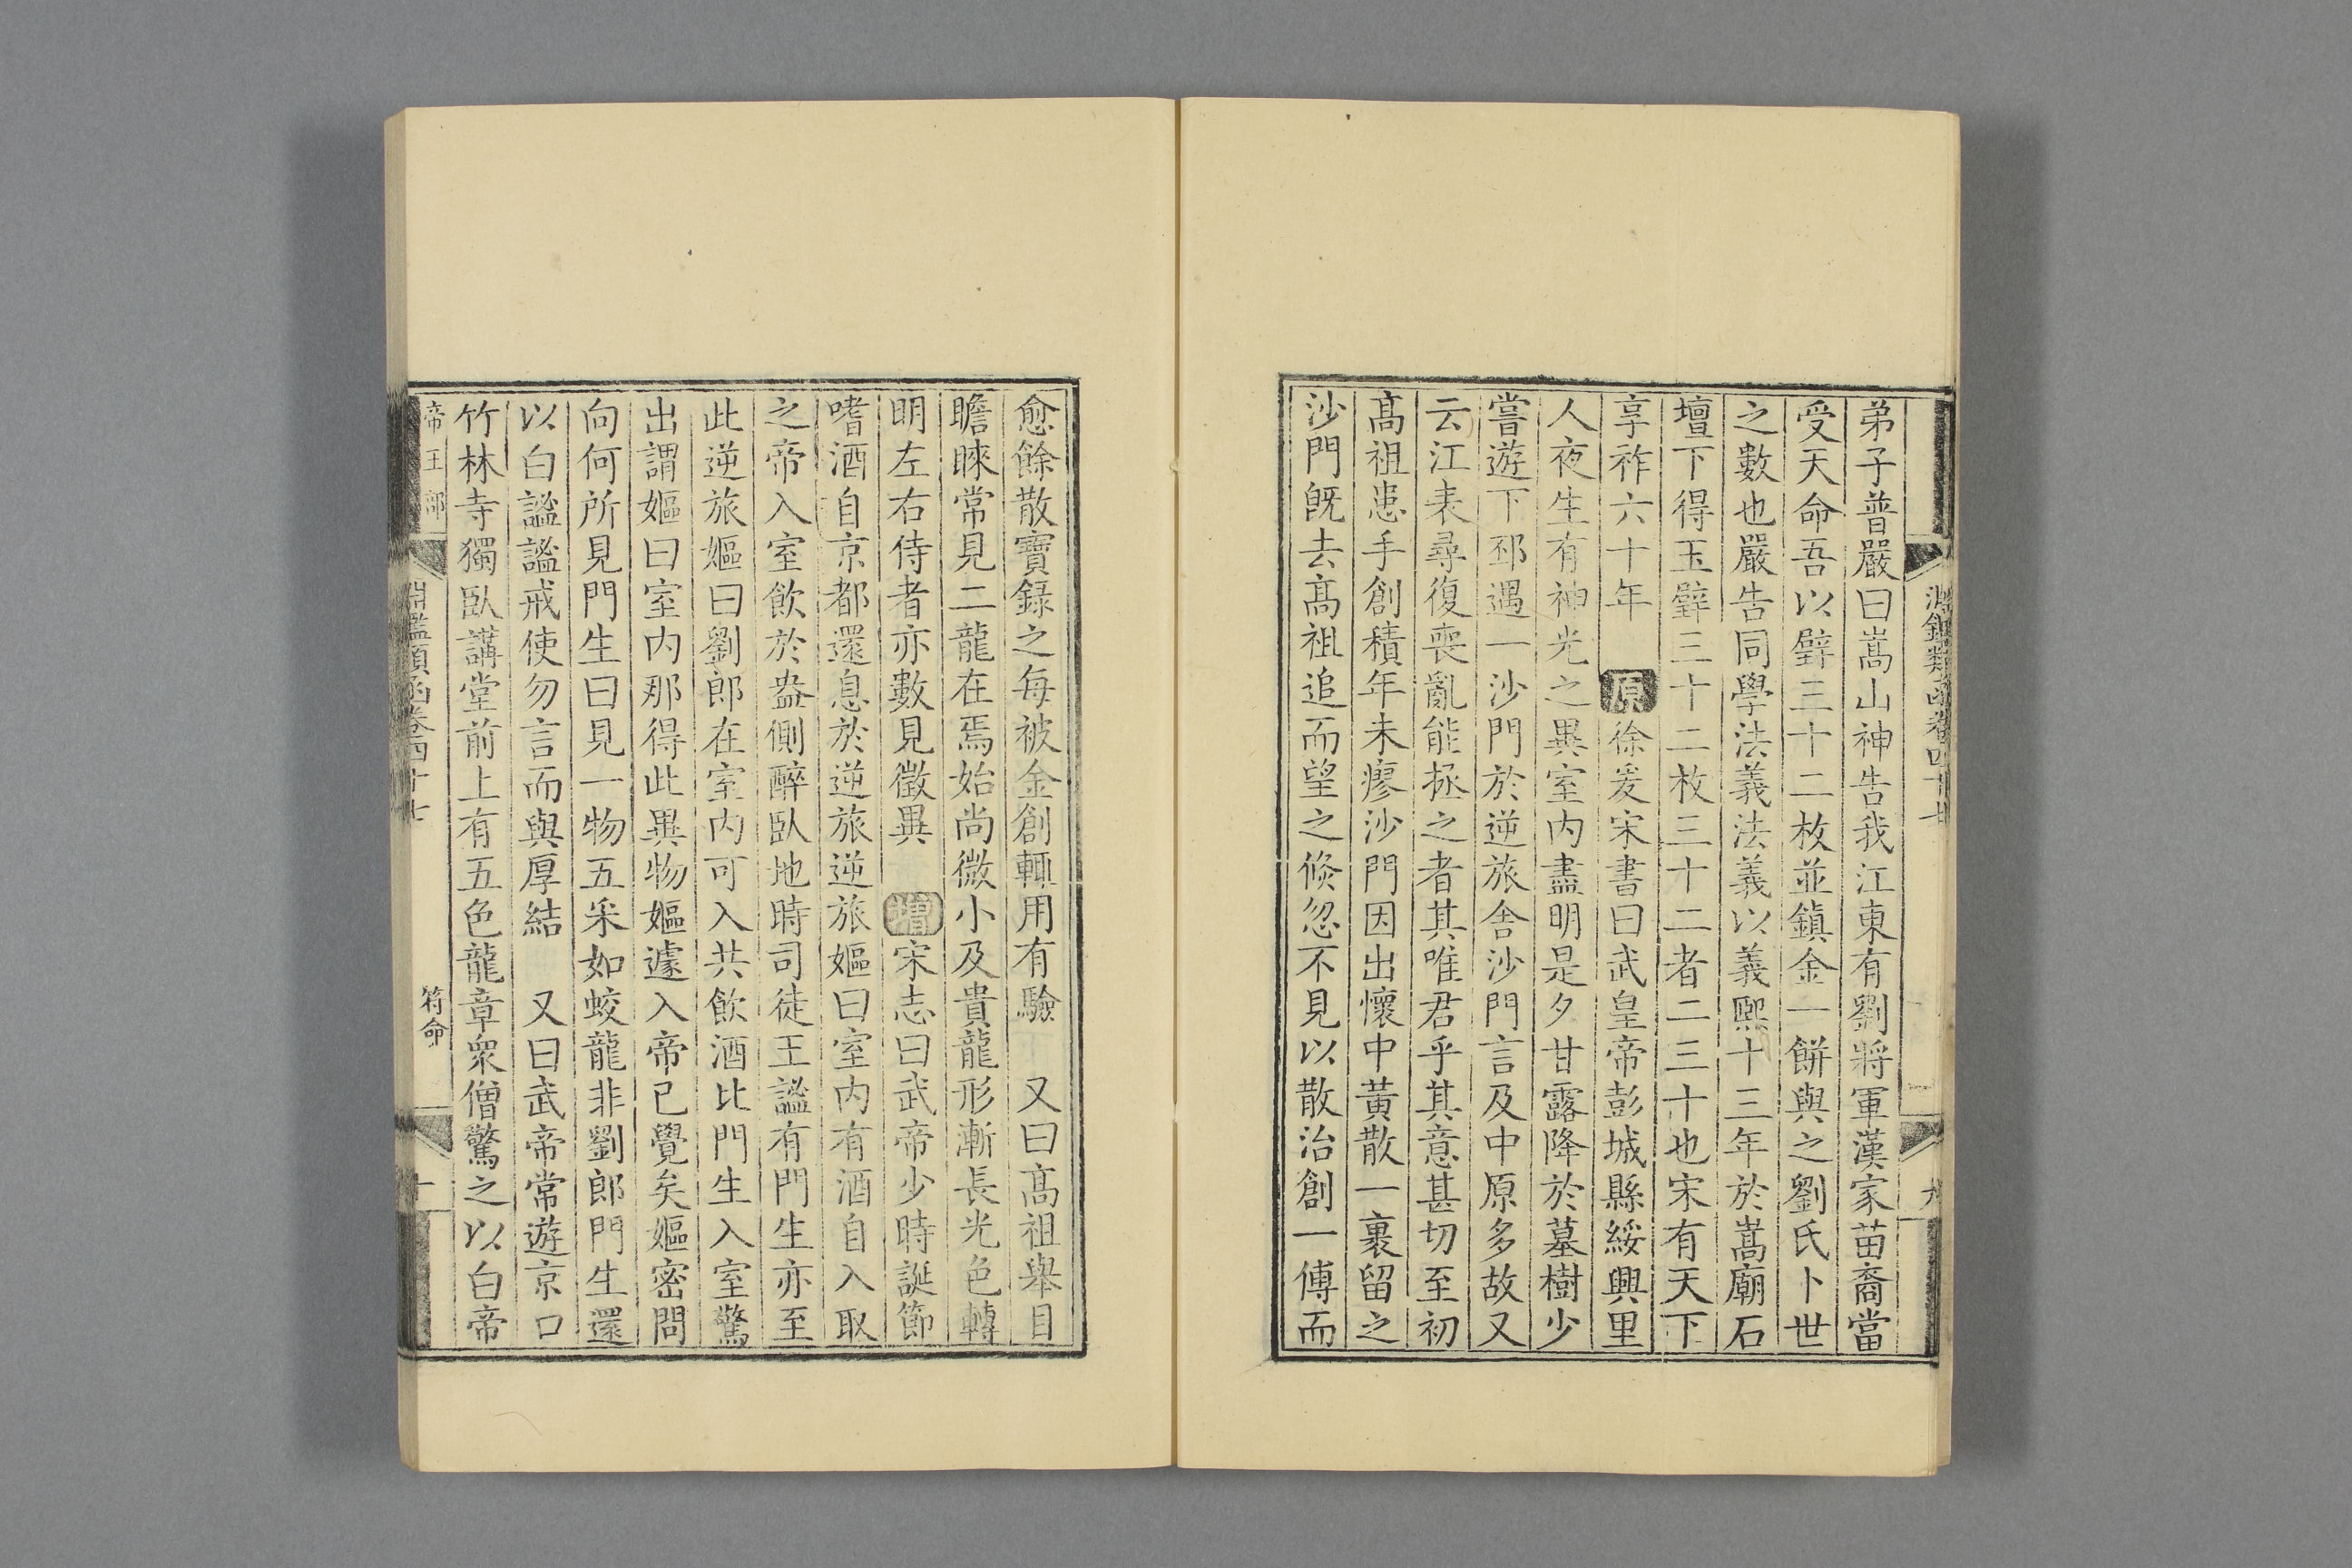 淵鑑類函卷四十七
九
弟子普嚴曰嵩山神告我江東有劉將軍漢家苗裔當
受天命吾以璧三十二枚並鎮金一餅與之劉氏卜世
之數也嚴告同學法義法義以義熙十三年於嵩廟石
壇下得玉璧三十二枚三十二者二三十也宋有天下
享祚六十年　原徐爰宋書曰武皇帝彭城縣綏興里
人夜生有神光之異室内盡明是夕甘露降於墓樹少
嘗遊下邳遇一沙門於逆旅舍沙門言及中原多故又
云江表尋復喪亂能拯之者其唯君乎其意甚切至初
髙祖患手創積年未瘳沙門因出懷中黃散一裹留之
沙門旣去髙祖追而望之倐忽不見以散治創一傅而
愈餘散寶錄之每被金創輒用有驗　又曰髙祖舉目
瞻睞常見二龍在焉始尚微小及貴龍形漸長光色轉
明左右侍者亦數見徵異　增宋志曰武帝少時誕節
嗜酒自京都還息於逆旅逆旅嫗曰室内有酒自入取
之帝入室飲於盎側醉臥地時司徒王謐有門生亦至
此逆旅嫗曰劉郎在室内可入共飲酒比門生入室驚
出謂嫗曰室内那得此異物嫗遽入帝已覺矣嫗密問
向何所見門生曰見一物五釆如蛟龍非劉郎門生還
以白謐謐戒使勿言而與厚結　又曰武帝常遊京口
竹林寺獨臥講堂前上有五色龍章衆僧驚之以白帝
帝王部
淵鑑類函卷四十七
符命
十